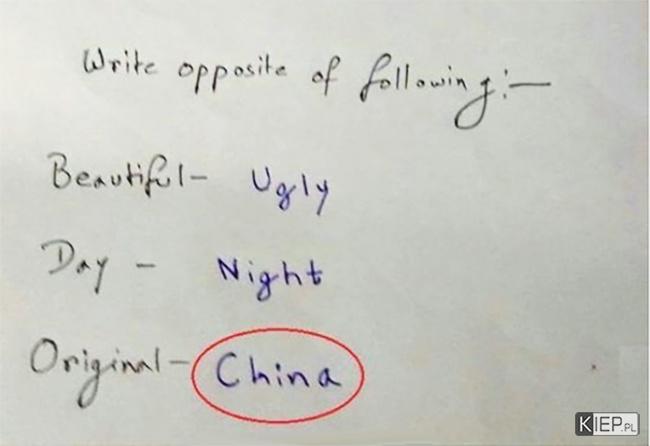 Write opposite of following:—
Beautiful- Ugly
Day - Night
Original- China
KIEP.PL